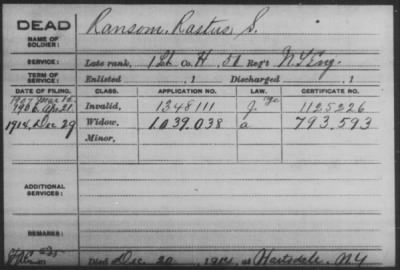 DEAD
NAME OF SOLDIER: Ransom, Rastus S.
SERVICE: Late rank, 1 Lt. Co. H, 50 Reg't N.Y. Eng.
TERM OF SERVICE: Enlisted , 1 Discharged , 1
DATE OF FILING. CLASS. APPLICATION NO. LAW. CERTIFICATE NO.
1907 Mar 12
1906 Apr 21 Invalid, 1348111 J. 1125226
1914, Dec 29 Widow, 1.039.038 a 793,593
Minor,
ADDITIONAL SERVICES:
REMARKS:
Died Dec. 20, 1914, at Hartsdale, N.Y.